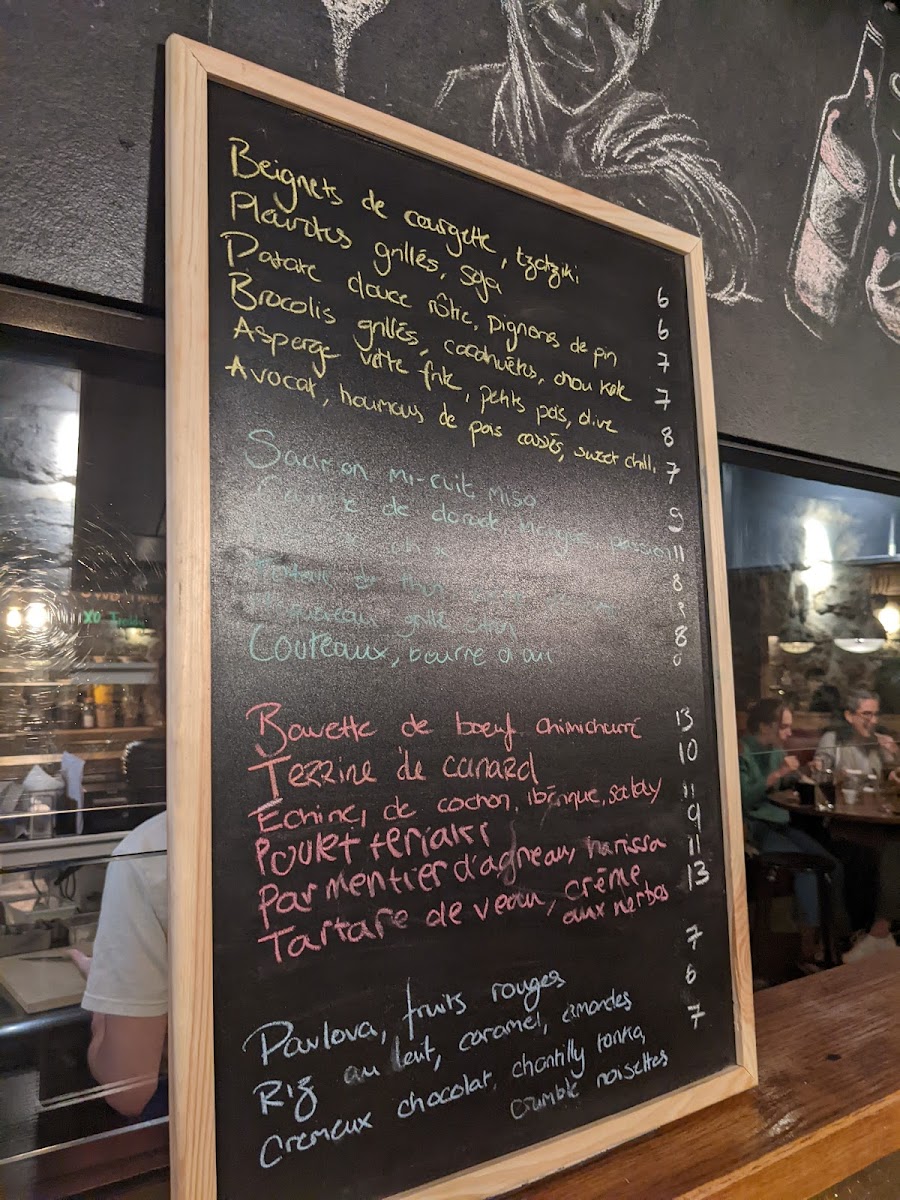 Beignets de courgette, tzatziki 6
Pleurotes grillés, soja 6
Patate douce rôtie, pignons de pin 7
Brocolis grillés, cacahuètes, chou kale 7
Asperge verte frite, petits pois, olive 8
Avocat, houmous de pois cassés, sweet chili 7
Saumon mi-cuit miso 9
de dorade passion 11
8
grillé
8
Couteaux, beurre d'ail
Bavette de boeuf chimichurri 13
Terrine de canard 10
Echine, de cochon, ibérique, satay 11
Poulet teriaki 9
Parmentier d'agneau, harissa 11
Tartare de veau, crème 13
aux herbes
Pavlova, fruits rouges 7
Riz au lait, caramel, amandes 6
Crémeux chocolat, chantilly tonka, 7
crumble noisettes